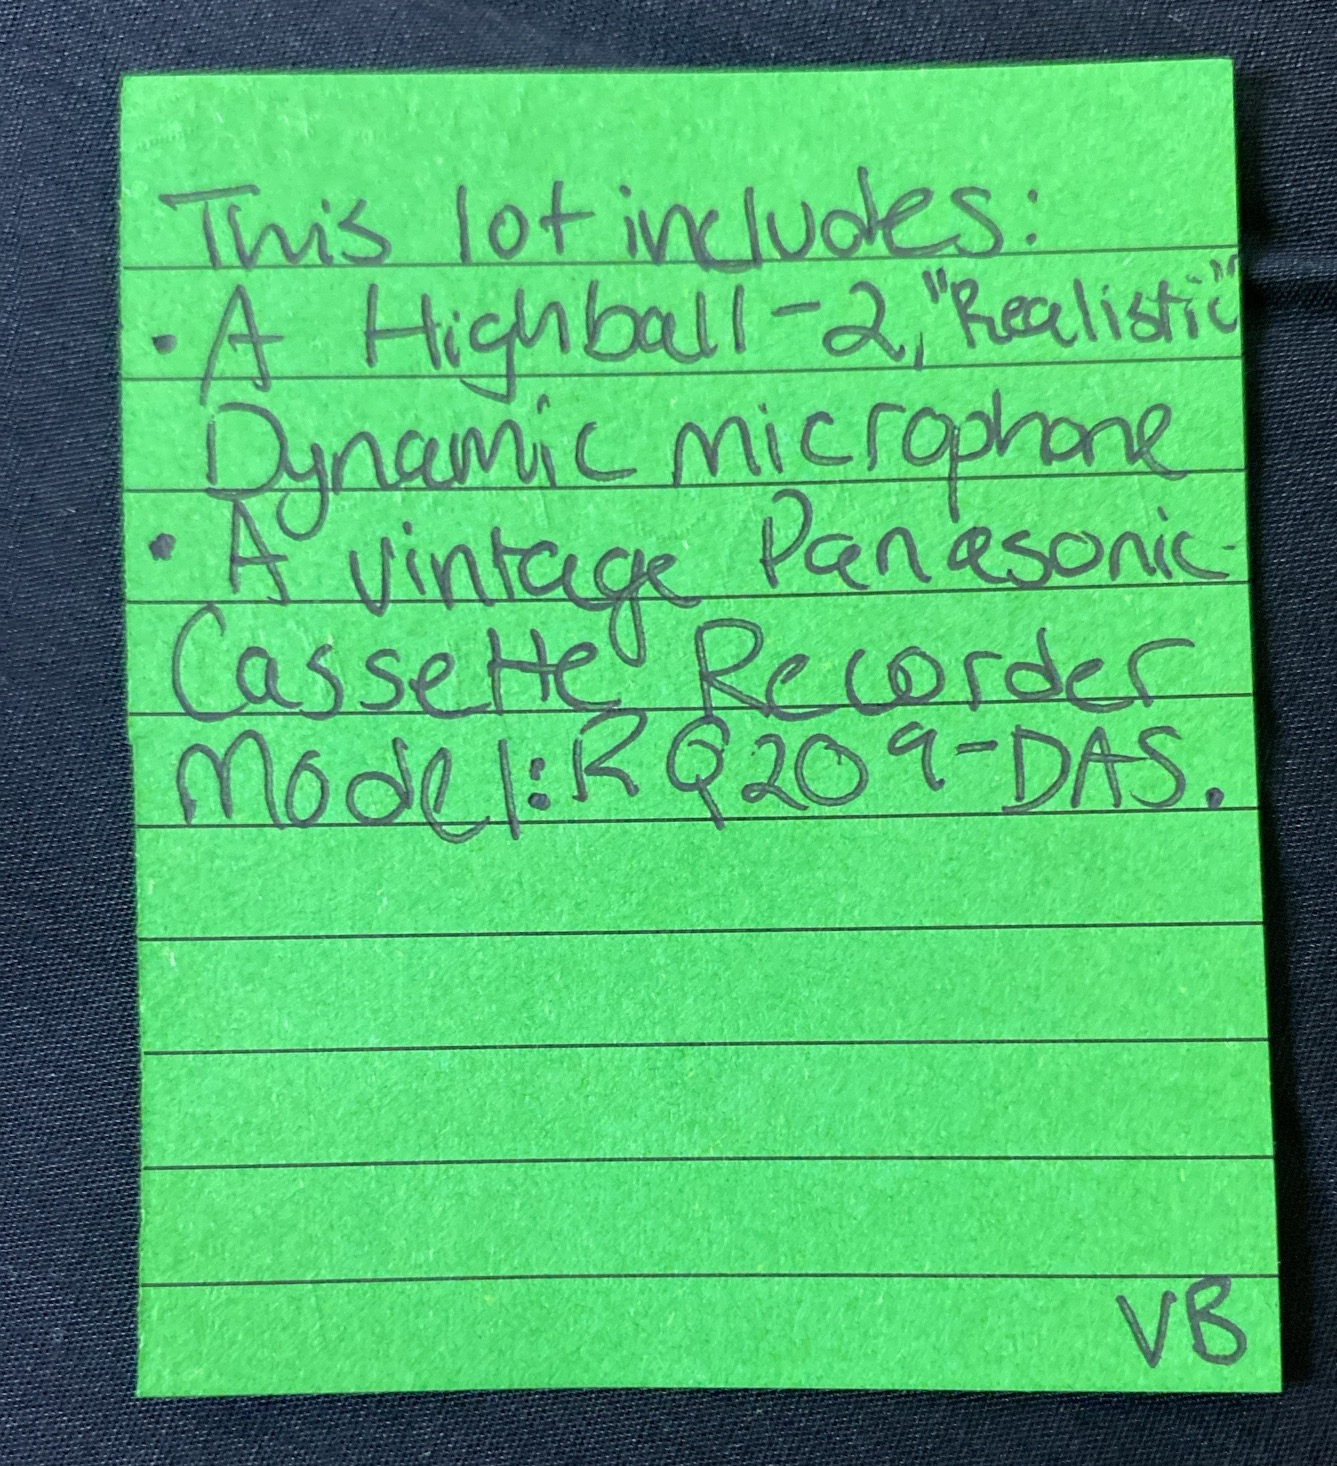 This lot includes:
• A Highball-2, "Realistic"
Dynamic microphone
• A vintage Panasonic
Cassette Recorder
Model: RQ209-DAS.
VB